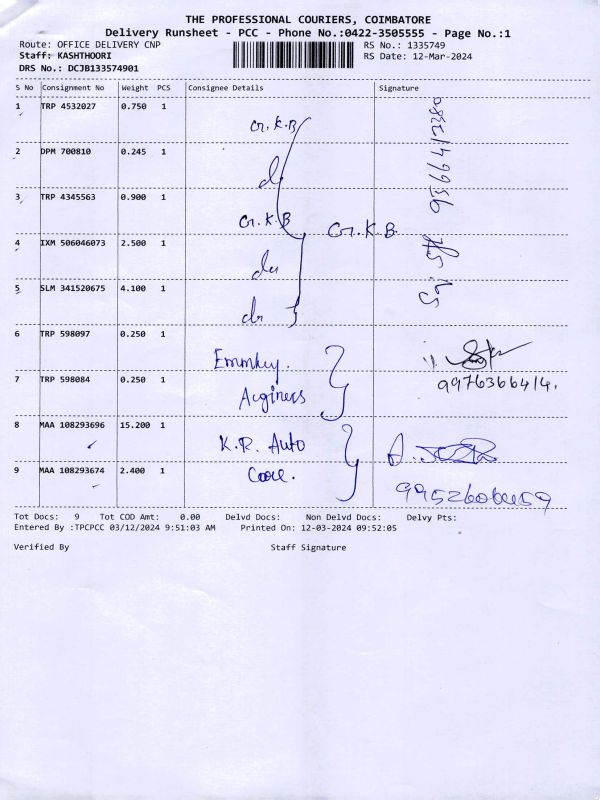 THE PROFESSIONAL COURIERS, COIMBATORE
Delivery Runsheet - PCC - Phone No.:0422-3505555 - Page No.:1
Route: OFFICE DELIVERY CNP
RS No.: 1335749
Staff: KASHTHOORI
RS Date: 12-Mar-2024
DRS No.: DCJB133574901
S No Consignment No Weight PCS Consignee Details Signature
1 TRP 4532027 0.750 1 Cr. K. B
2 DPM 700810 0.245 1
3 TRP 4345563 0.900 1 Cr. K. B
Cr. K. B.
4 IXM 506046073 2.500 1
5 SLM 341520675 4.100 1
6 TRP 598097 0.250 1
9976366414.
7 TRP 598084 0.250 1
8 MAA 108293696 15.200 1 K.R. Auto
9 MAA 108293674 2.400 1
Tot Docs: 9 Tot COD Amt: 0.00 Delvd Docs: Non Delvd Docs: Delvy Pts:
Entered By :TPCPCC 03/12/2024 9:51:03 AM Printed On: 12-03-2024 09:52:05
Verified By Staff Signature